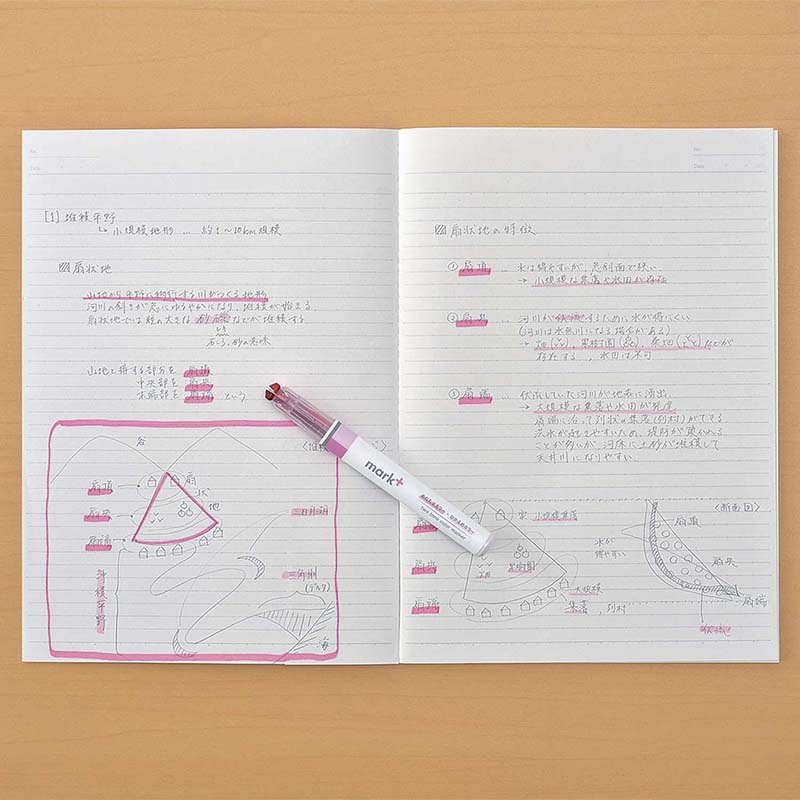 No.
Date
[1] 堆積平野
↳ 小規模地形 … 約1〜10km規模
扇状地
山地から平野に物行する川がつくる地形
河川の斜きが急にゆるやかになり、堆積が始まる
扇状地では粒の大きな砂礫などが堆積する
石ころ、砂の意味
山地と接する部分を 扇頂
中央部を 扇央
末端部を 扇端 という
谷
扇状地
扇頂
扇央
扇端
三日月湖
三角州
(デルタ)
堆積平野
海
mark+
two tone color marker
No.
Date
扇状地の特徴
① 扇頂 … 水は得やすいが、急斜面で狭い
→ 小規模な集落や水田が存在
② 扇央 … 河川が伏流するために水が得にくい
(河川は水無川になる場合がある)
→ 畑、果樹園、桑畑などが
存在する、水田は不可
③ 扇端 … 伏流していた河川が地表に湧出
→ 大規模な集落や水田が発達
扇端に沿って列状の集落(列村)ができる
洪水が起こりやすいため、堤防が築かれる
ことが多いが、河床に土砂が堆積して
天井川になりやすい。
扇頂
扇央
扇端
小規模集落
水が
得やすい
果樹園
大規模
集落、列村
〈断面図〉
扇頂
扇央
扇端
伏流